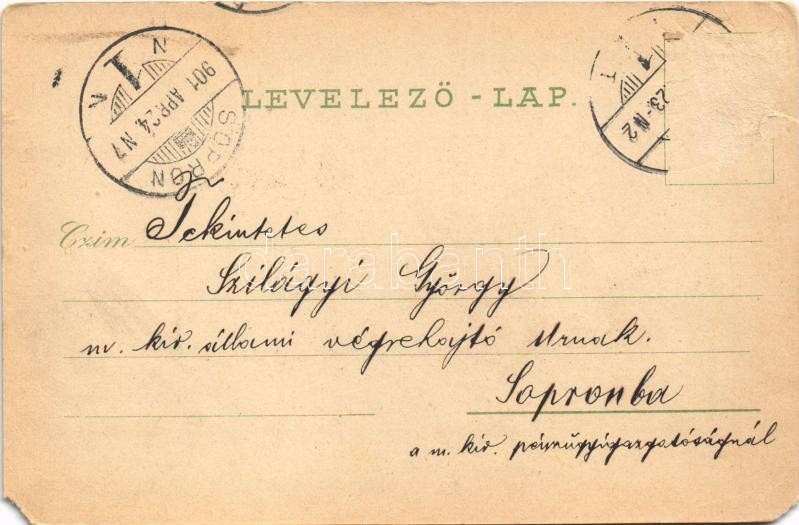 LEVELEZŐ - LAP.
SOPRON
901 APR. 24. N7
23. N2
Czim Tekintetes
Szilágyi György
m. kir. állami végrehajtó Urnak.
Sopronba
a m. kir. pénzügyigazgatóságnál
darabanth